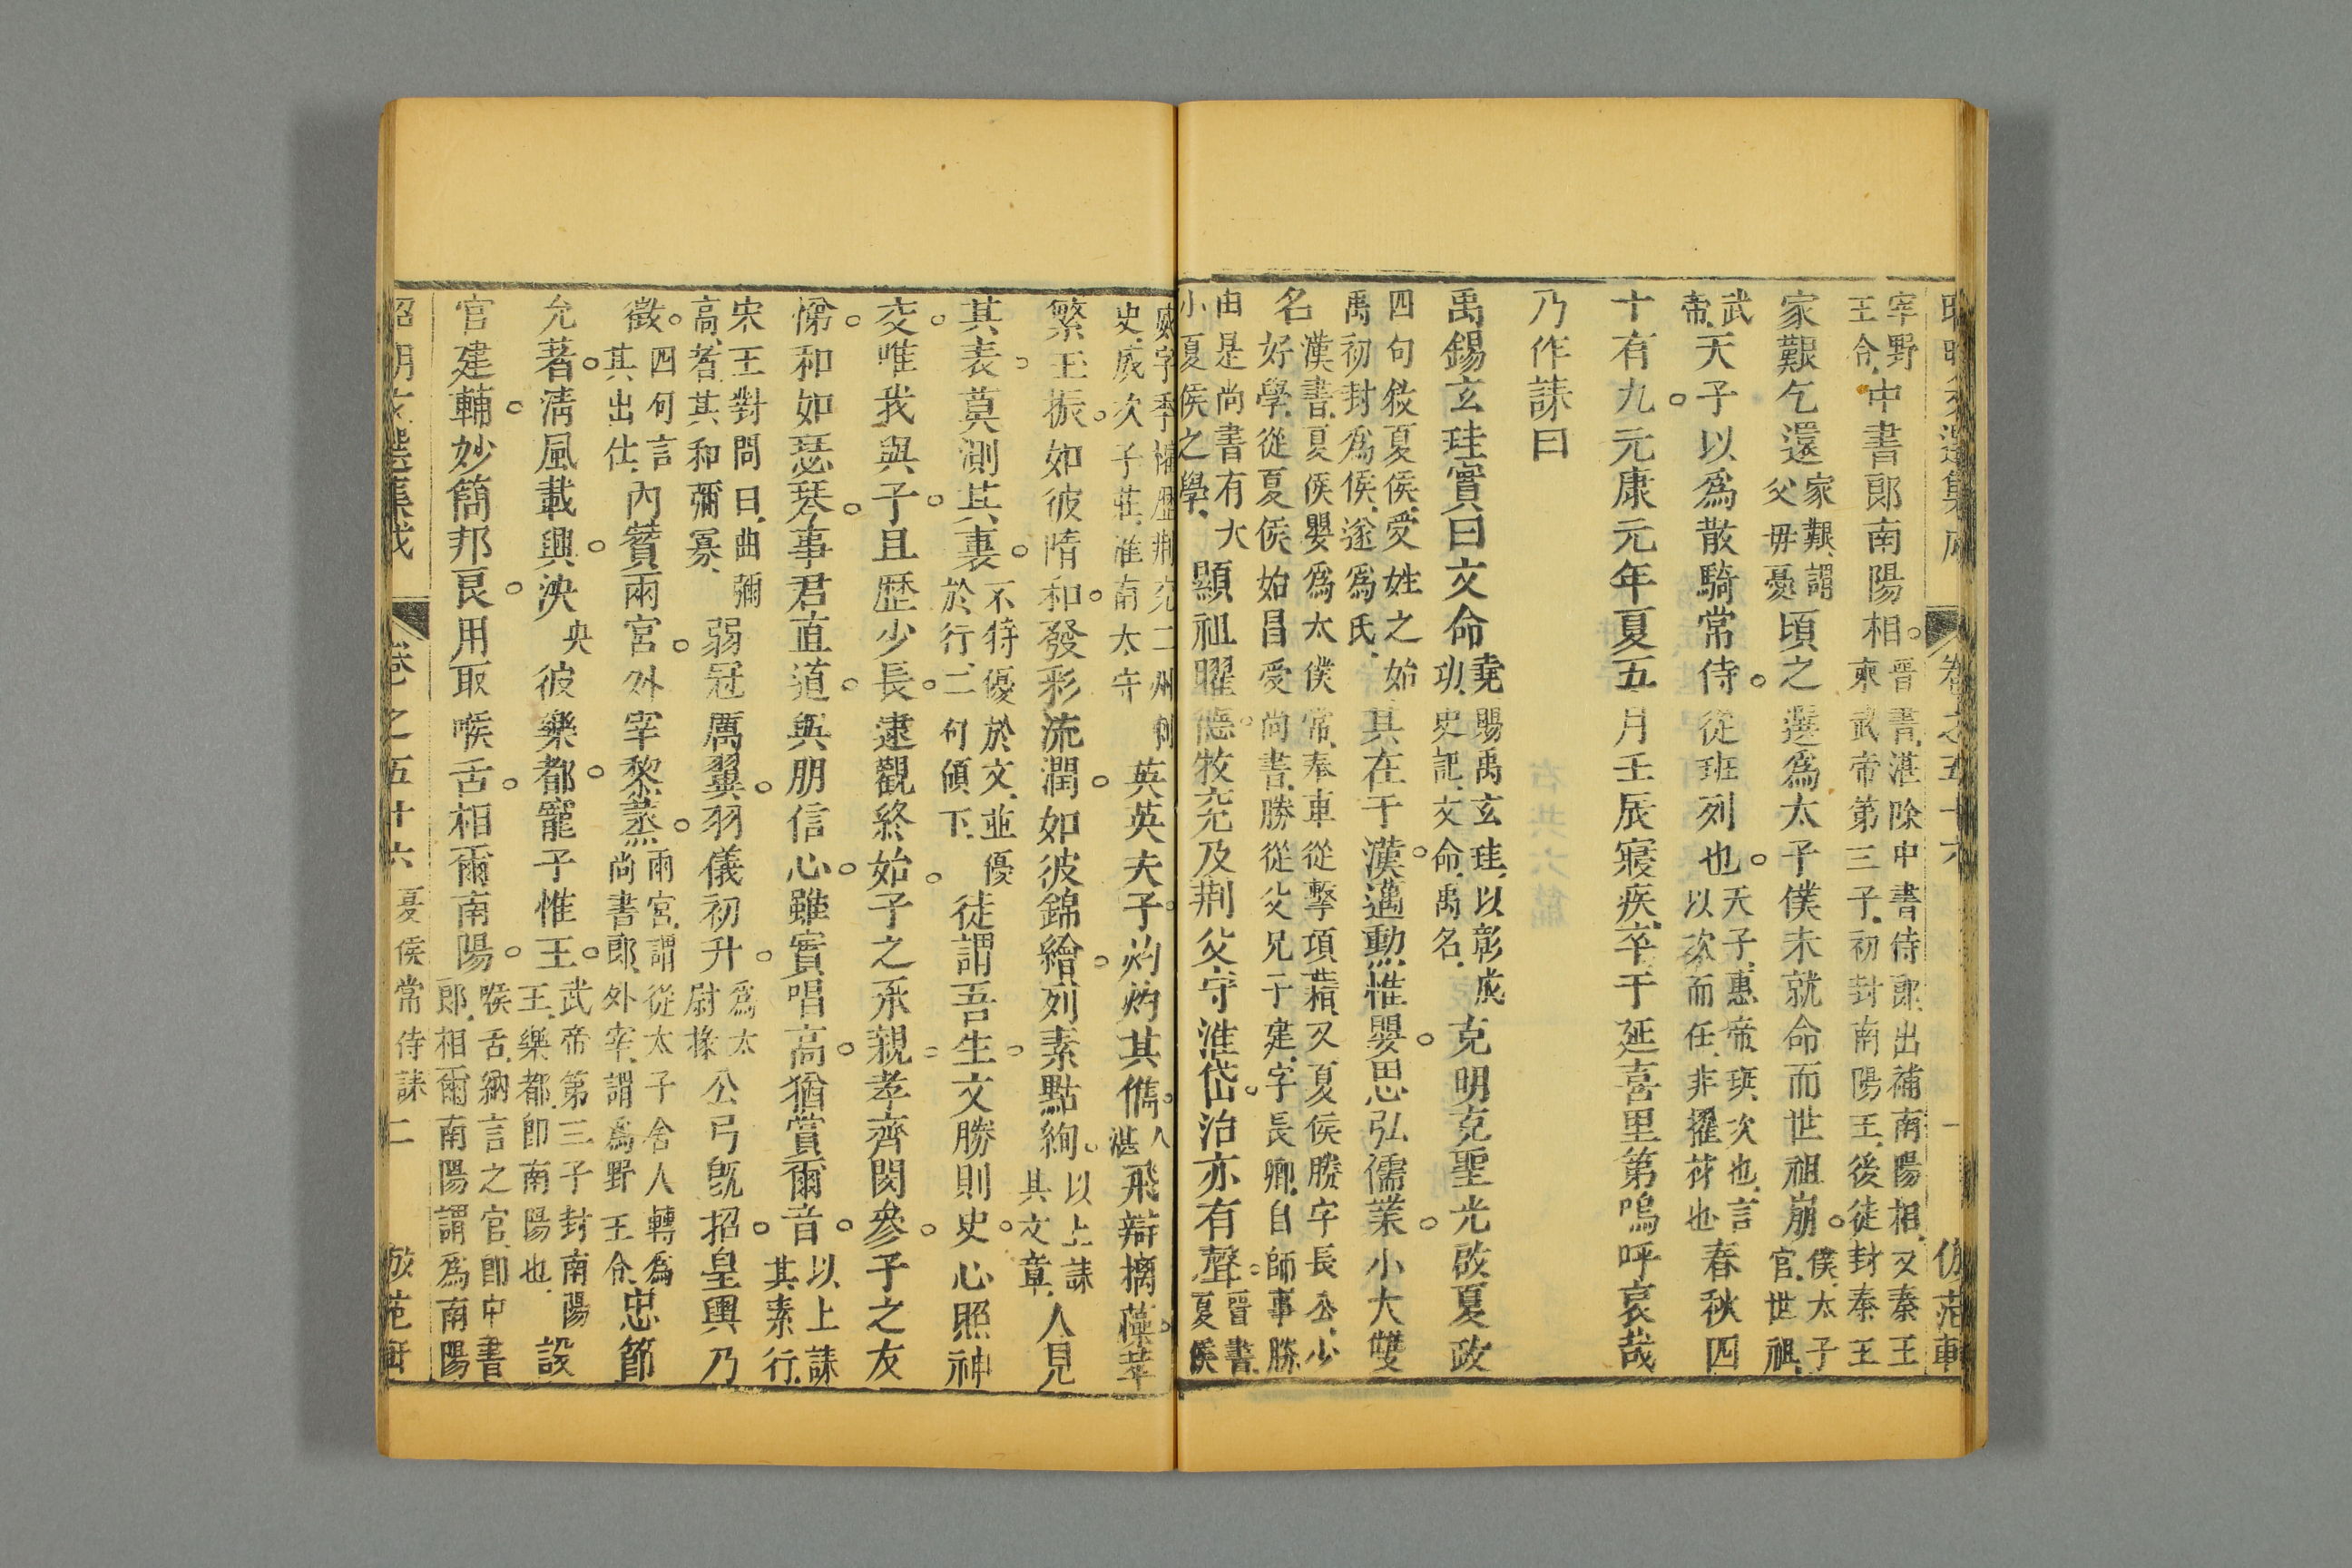 卷之五十六 一
宰野王令中書郎南陽相晉書湛除中書侍郎出補南陽相又秦王柬武帝第三子初封南陽王後徙封秦王
家艱乞還家艱謂父母憂頃之選爲太子僕未就命而世祖崩僕太子官世祖
武帝天子以爲散騎常侍從班列也天子惠帝班次也言以次而任非擢材也春秋四
十有九元康元年夏五月壬辰寢疾卒于延喜里第嗚呼哀哉
乃作誄曰
禹錫玄珪實曰文命堯賜禹玄珪以彰成功史記文命禹名克明克聖光啟夏政
四句敘夏侯受姓之始禹初封爲侯遂爲氏其在于漢邁勳惟嬰思弘儒業小大雙
名漢書夏侯嬰爲太僕常奉車從擊項籍又夏侯勝字長公少好學從夏侯始昌受尚書勝從父兄子建字長卿自師事勝
由是尚書有大小夏侯之學顯祖曜德牧兗及荆父守淮岱治亦有聲晉書夏侯
威字季權歷荆兗二州刺史威次子莊淮南太守英英夫子灼灼其儁人湛飛辯摛藻華
繁玉振如彼隋和發彩流潤如彼錦繪列素點絢以上誄其文章人見
其表莫測其裏不特優於文並優於行二句領下徒謂吾生文勝則史心照神
交唯我與子且歷少長逮觀終始子之承親孝齊閔參子之友
悌和如瑟琴事君直道與朋信心雖實唱高猶賞爾音以上誄其素行
宋王對問曰曲彌高者其和彌寡弱冠厲翼羽儀初升爲太尉掾公弓既招皇輿乃
徵四句言其出仕內贊兩宮外宰黎蒸兩宮謂從太子舍人轉爲尚書郎外宰謂爲野王令忠節
允著清風載興泱央彼樂都寵子惟王武帝第三子封南陽王樂都即南陽也設
官建輔妙簡邦良用取喉舌相爾南陽喉舌納言之官即中書郎相爾南陽謂爲南陽
昭明文選集成 卷之五十六 夏侯常侍誄 二